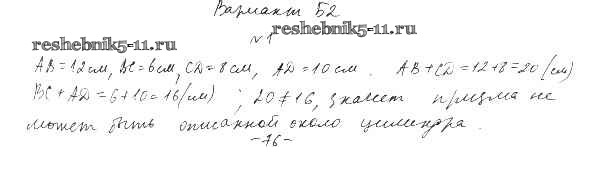 Вариант Б2
№1
reshebnik5-11.ru
reshebnik5-11.ru
AB=12см, BC=6см, CD=8см, AD=10см. AB+CD=12+8=20(см)
BC+AD=6+10=16(см); 20≠16, значит призма не
может быть описанной около цилиндра.
-76-